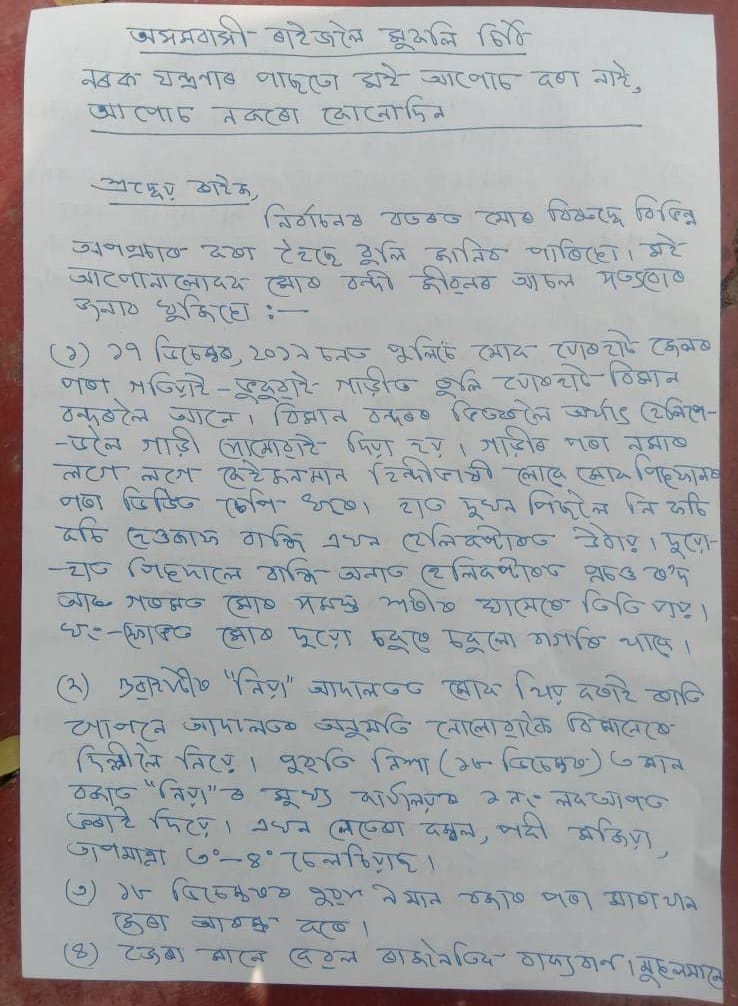 অসমবাসী ৰাইজলৈ মুকলি চিঠি
নৰক যন্ত্ৰণাৰ পাছতো মই আপোচ কৰা নাই,
আপোচ নকৰো কোনোদিন
শ্ৰদ্ধেয় ৰাইজ,
নিৰ্বাচনৰ বতৰত মোৰ বিৰুদ্ধে বিভিন্ন
অপপ্ৰচাৰ কৰা হৈছে বুলি জানিব পাৰিছো। মই
আপোনালোকক মোৰ বন্দী জীৱনৰ আচল সত্যবোৰ
জনাব খুজিছো :—
(১) ১৭ ডিচেম্বৰ, ২০১৯ চনত পুলিচে মোক যোৰহাট জেলৰ
পৰা গতিয়াই-ভুকুৱাই গাড়ীত তুলি যোৰহাট বিমান
বন্দৰলৈ আনে। বিমান বন্দৰৰ ভিতৰলৈ অৰ্থাৎ হেলিপে-
-ডলৈ গাড়ী সোমোৱাই দিয়া হয়। গাড়ীৰ পৰা নমাৰ
লগে লগে কেইজনমান হিন্দীভাষী লোকে মোক পিছফালৰ
পৰা ডিঙিত চেপি ধৰে। হাত দুখন পিছলৈ নি কচি
কচি হেণ্ডকাফ বান্ধি এখন হেলিকপ্টাৰত উঠায়। দুয়ো-
-হাত পিছফালে বান্ধি অনাত হেলিকপ্টাৰত প্ৰচণ্ড কষ্ট
আৰু গৰমত মোৰ সমস্ত শৰীৰ ঘামেৰে তিতি যায়।
মোৰ দুয়ো চকুৰে চকুলো বাগৰি থাকে।
(২) গুৱাহাটীৰ "নিয়া" আদালতত মোক থিয় কৰাই ৰাতি
আদালতৰ অনুমতি নোলোৱাকৈ বিমানেৰে
দিল্লীলৈ নিয়ে। পুৱতি নিশা (১৮ ডিচেম্বৰ) ৩ মান
বজাত "নিয়া"ৰ মুখ্য কাৰ্যালয়ৰ ১ নং লকআপত
ভৰাই দিয়ে। এখন লেতেৰা কম্বল, পকী মজিয়া,
তাপমাত্ৰা ৩°–৪° চেলচিয়াছ।
(৩) ১৮ ডিচেম্বৰৰ পুৱা ৯ মান বজাৰ পৰা মাৰাথন
জেৰা আৰম্ভ কৰে।
(৪) জেৰা মানে কেৱল ৰাজনৈতিক বাক্যবাণ। মুছলমানে